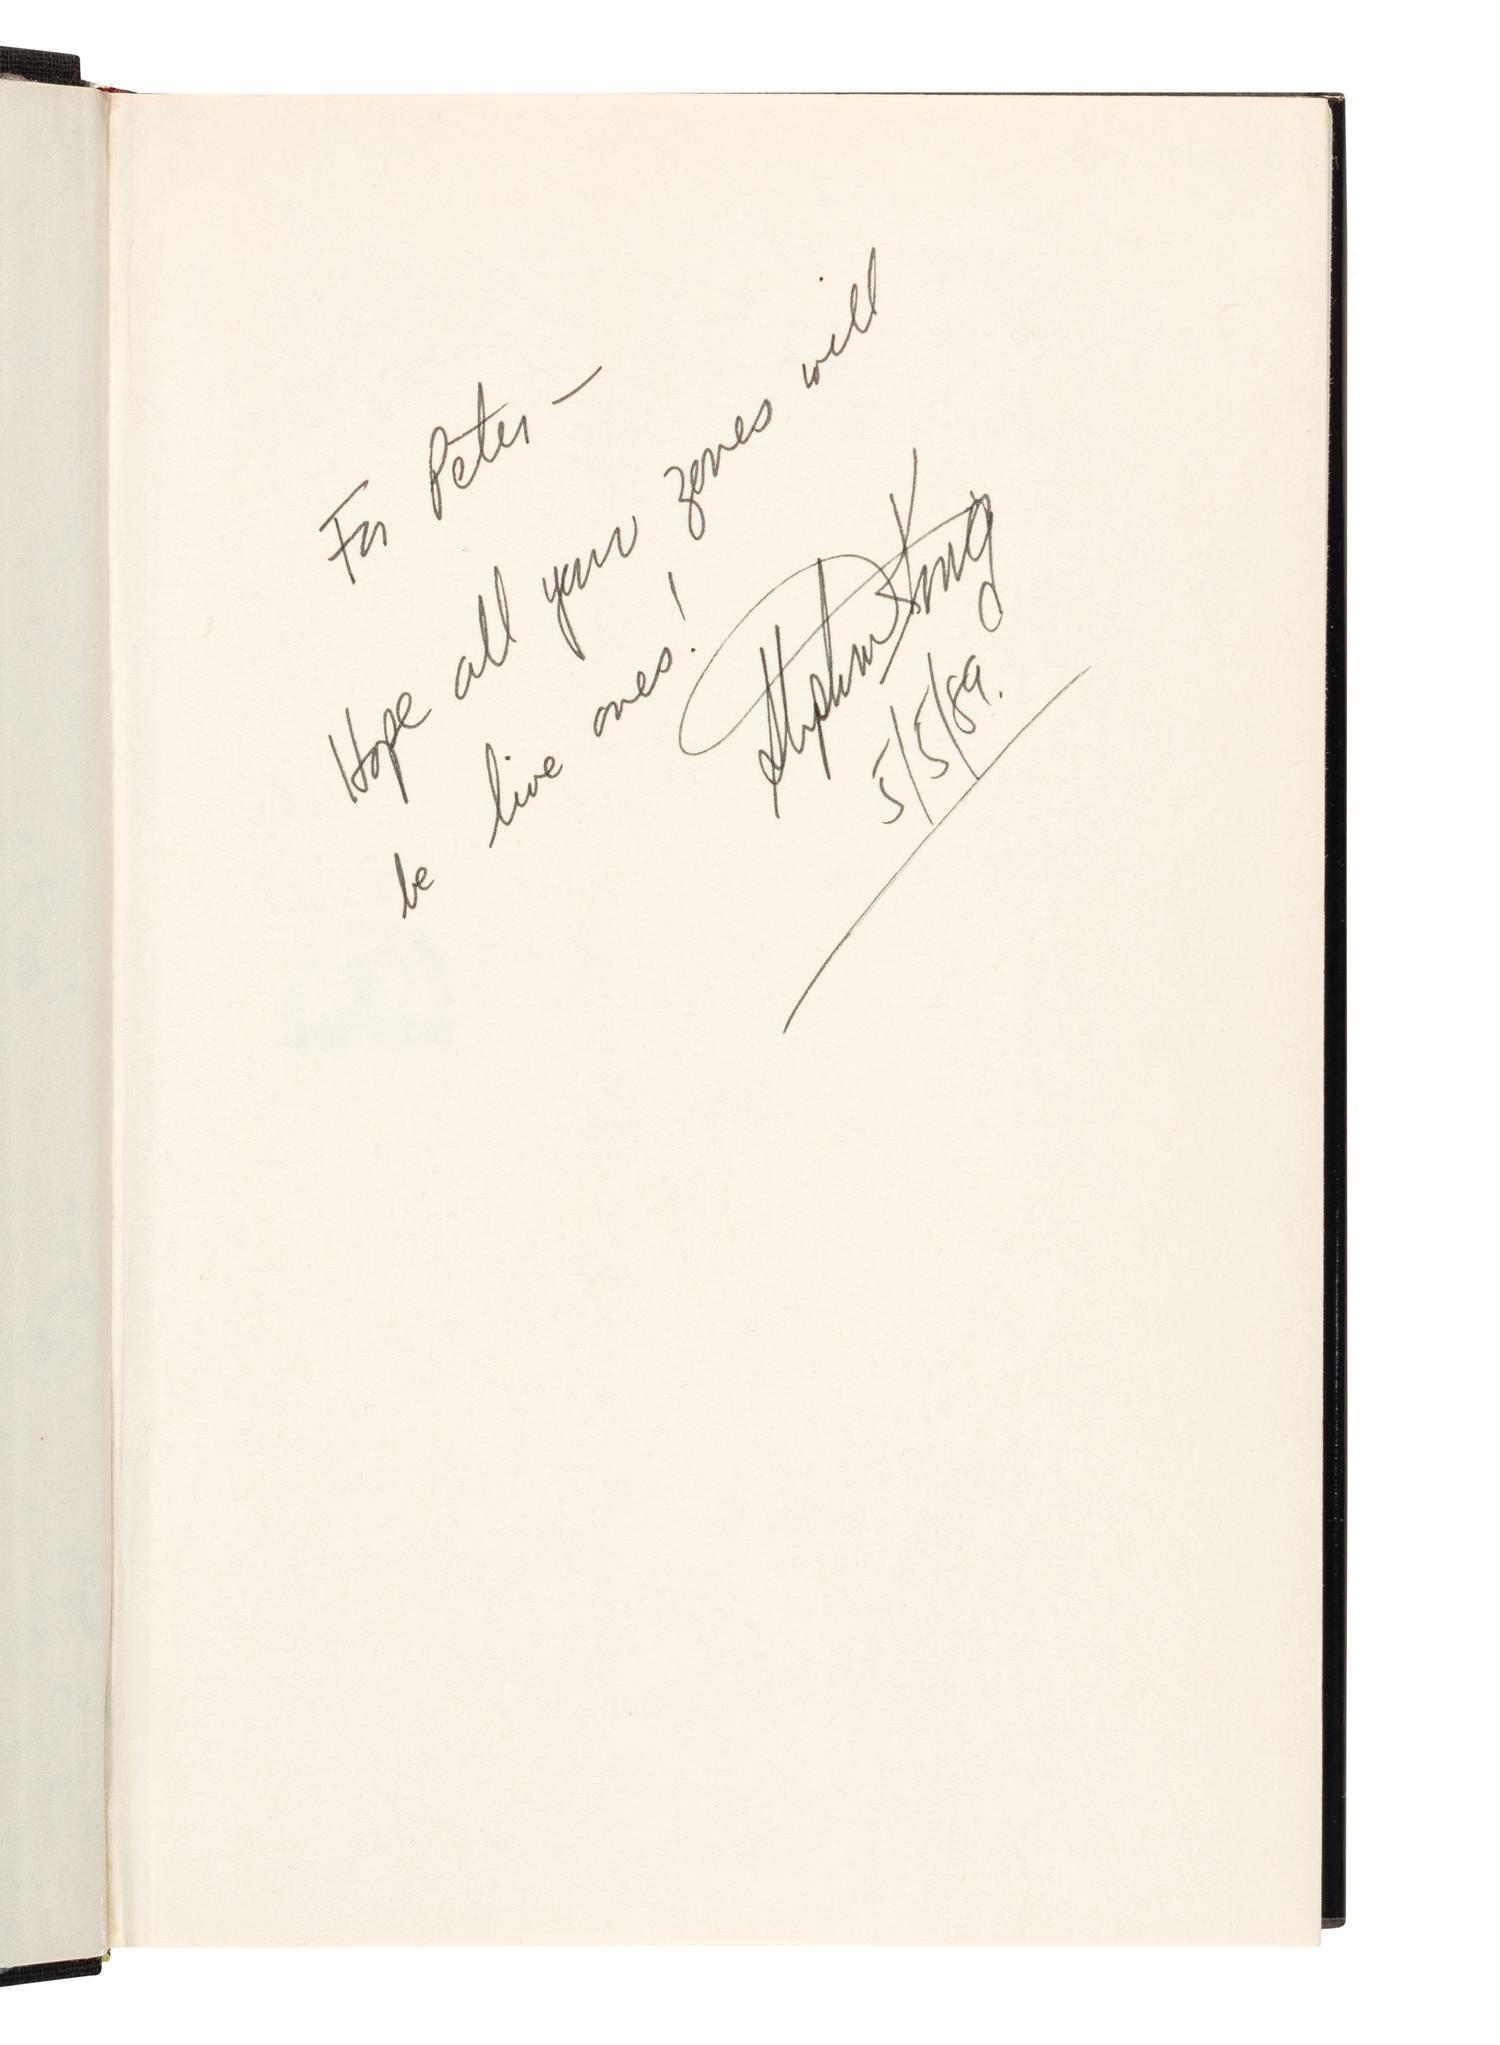 For Peter —
Hope all your zones will
be live ones!
Stephen King
5/5/89.